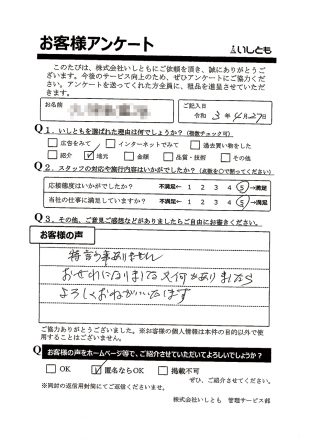 お客様アンケート いしとも
このたびは、株式会社いしともにご依頼を頂き、誠にありがとうご
ざいます。今後のサービス向上のため、ぜひアンケートにご協力くださ
い。アンケートを送ってくれた方全員に、粗品を進呈させていただ
きます。
お名前 ご記入日
令和 3年4月27日
Q1.いしともを選ばれた理由は何でしょうか?(複数チェック可)
□広告をみて □インターネットでみて □過去買い物をした
□紹介 ☑地元 □金額 □品質・技術 □その他
Q2.スタッフの対応や施行内容はいかがでしたか?(点数を○で囲ってください)
応接態度はいかがでしたか? 不満足← 1 2 3 4 5 →満足
当社の仕事に満足していますか? 不満足← 1 2 3 4 5 →満足
Q3.その他、ご意見ご感想などがありましたらご自由にお書きください。
お客様の声
特言う事ありません
おせわになりました又何かありましたら
よろしくおねがいいたします
ご協力ありがとうございました。※お客様の個人情報は本件の目的以外で使
用することはございません。
Q お客様の声をホームページ等で、ご紹介させていただいてよろしいでしょうか?
□OK ☑匿名ならOK □掲載不可
ぜひ、ご紹介させてください。
※同封の返信用封筒にてご返信くださいませ。
株式会社いしとも 管理サービス部